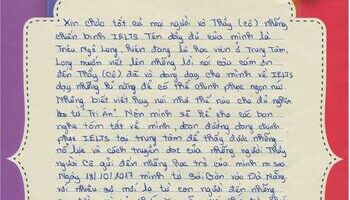 Xin chào tất cả mọi người và Thầy (cô) những
chiến binh IELTS Tên đầy đủ của mình là
Triệu Ngô Long, hiện đang là học viên ở Trung Tâm,
Long muốn viết lên những lời nói cảm ơn
đến Thầy (Cô) đã và đang dạy cho mình về IELTS
dạy những kĩ năng để có thể chinh phục ngọn núi
Những biết viết hay nói như thế nào cho đủ nghĩa
từ "Tri Ân". Nên mình sẽ kể cho các bạn
nghe tóm tắt về mình đoạn đường đang chinh
phục IELTS tại trung tâm để thấy được những
nổ lực và cách truyền đạt của những người Thầy
người Cô gửi đến những học trò của mình
Ngày 13/10/2017 mình từ Sài Gòn vào Đà Nẵng
với nhiều sự mới lạ từ con người đến những